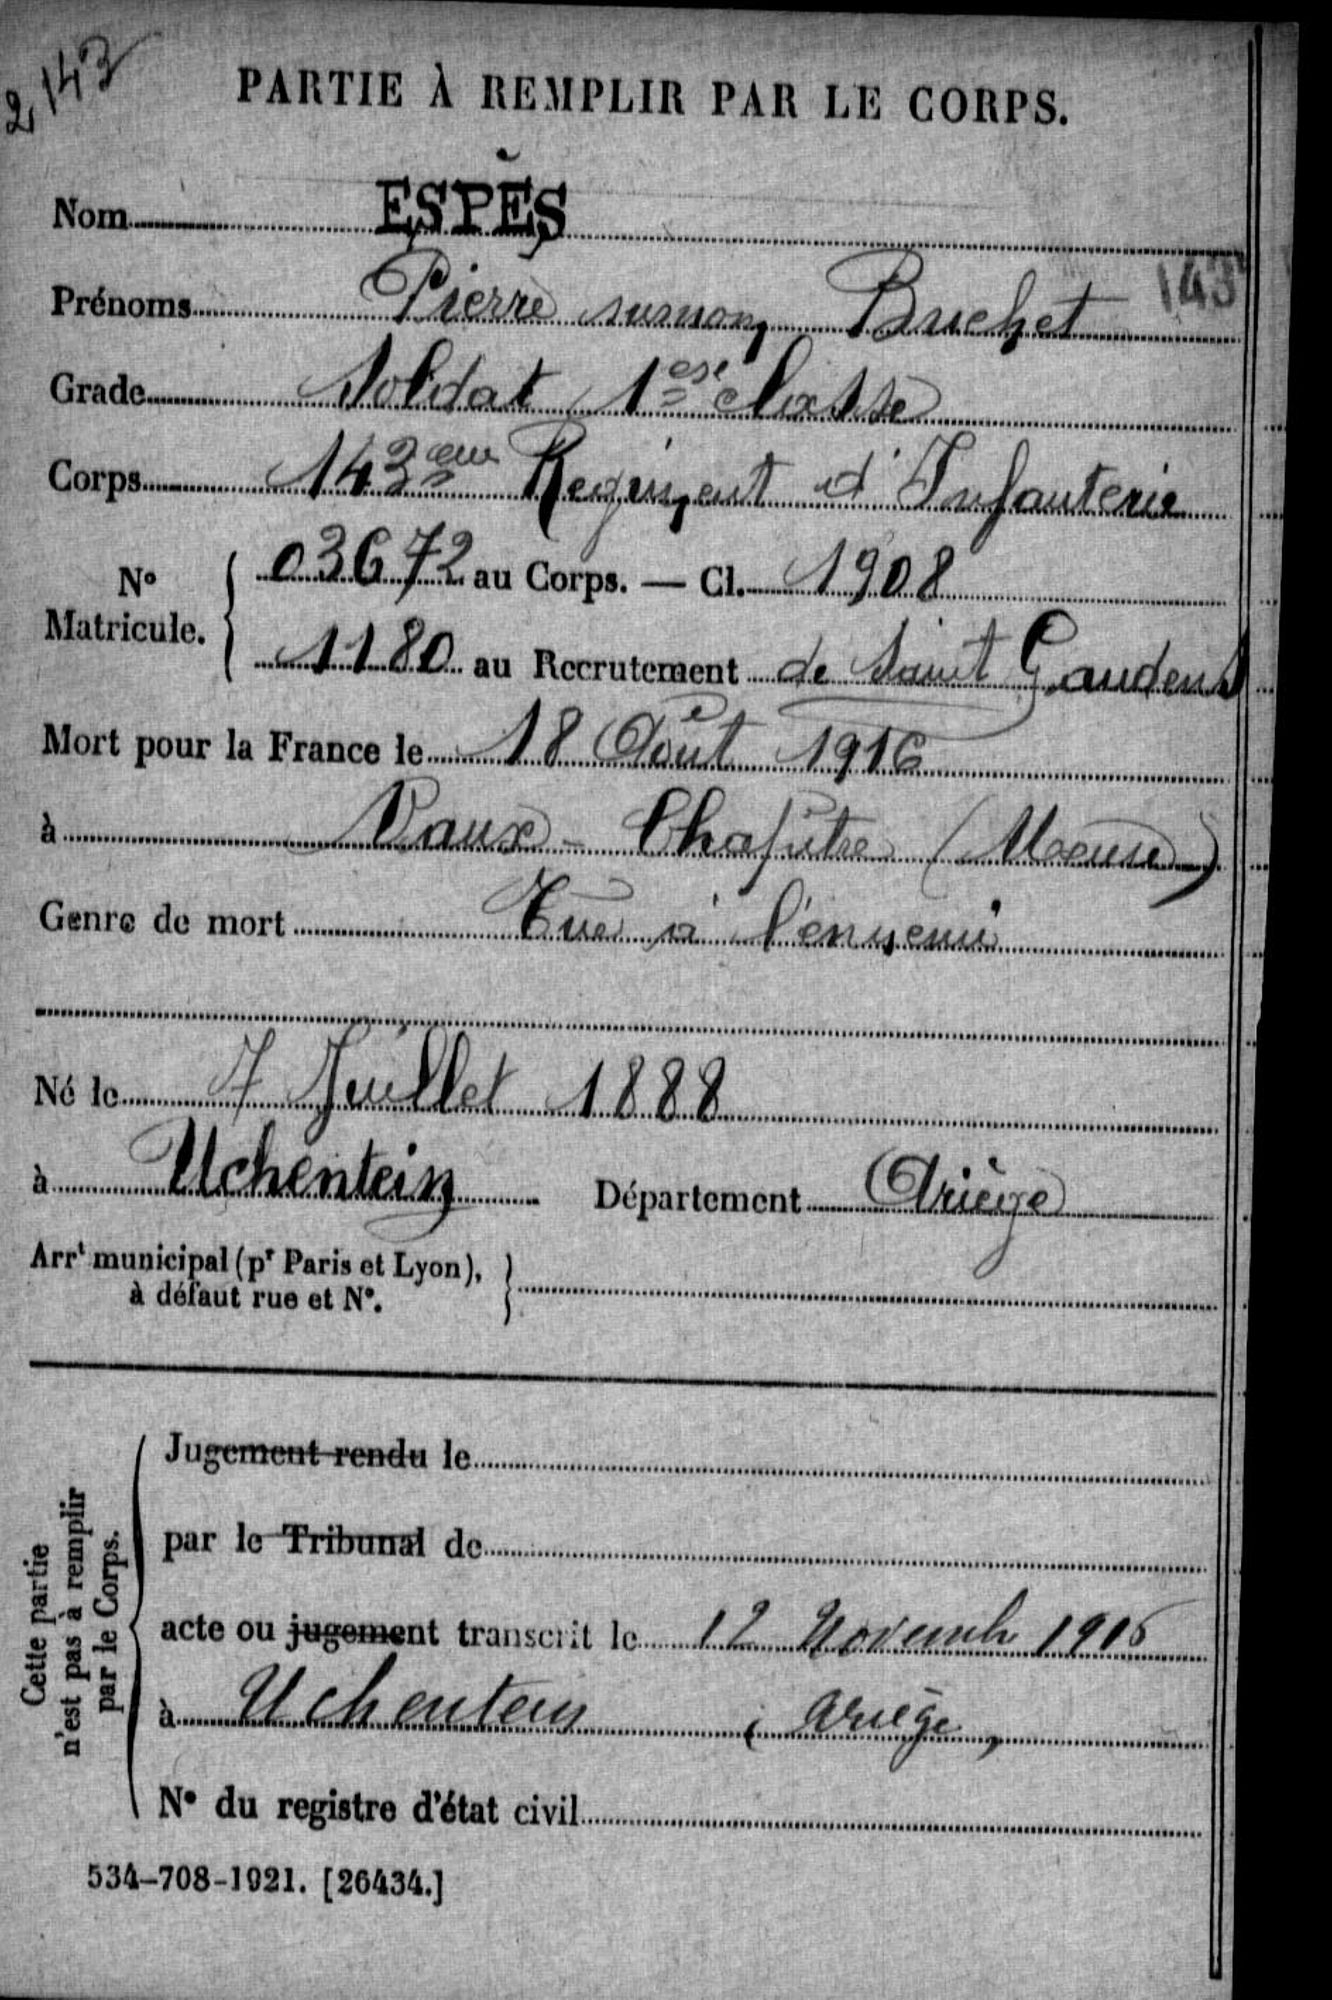 2143
PARTIE À REMPLIR PAR LE CORPS.
Nom ESPÈS
Prénoms Pierre surnom Buchet
143
Grade Soldat 1ere Classe
Corps 143eme Regiment d'Infanterie
N° Matricule. 03672 au Corps. — Cl. 1908
1180 au Recrutement de Saint Gaudens
Mort pour la France le 18 Août 1916
à Vaux-Chapitre (Meuse)
Genre de mort Tué à l'ennemi
Né le 7 Juillet 1888
à Uchentein Département Ariège
Arrt municipal (pr Paris et Lyon),
à défaut rue et N°.
Cette partie
n'est pas à remplir
par le Corps.
Jugement rendu le
par le Tribunal de
acte ou jugement transcrit le 12 Novembre 1916
à Uchentein (Ariège)
N° du registre d'état civil
534-708-1921. [26434.]